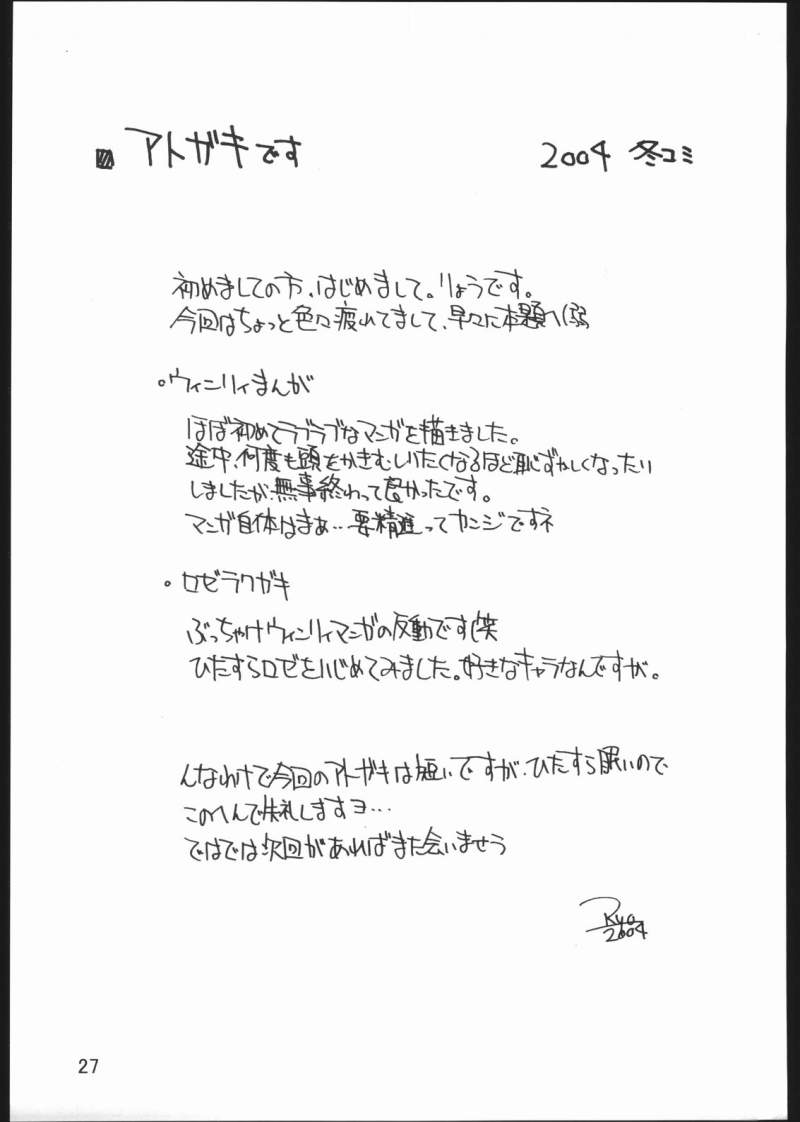 アトガキです
2004 冬コミ
初めましての方、はじめまして。りょうです。
今回はちょっと色々疲れてまして、早々に本題へ(弱
・ウィンリィまんが
ほぼ初めてラブラブなマンガを描きました。
途中、何度も頭をかきむしりたくなるほど恥ずかしくなったり
しましたが、無事終わって良かったです。
マンガ自体はまぁ…要精進ってカンジですネ
・ロゼラクガキ
ぶっちゃけウィンリィマンガの反動です(笑
ひたすらロゼをいじめてみました。好きなキャラなんですが。
んなわけで今回のアトガキは短いですが、ひたすら眠いので
このへんで失礼しますヨ…
ではでは次回があればまた会いませう
Ryo
2004
27